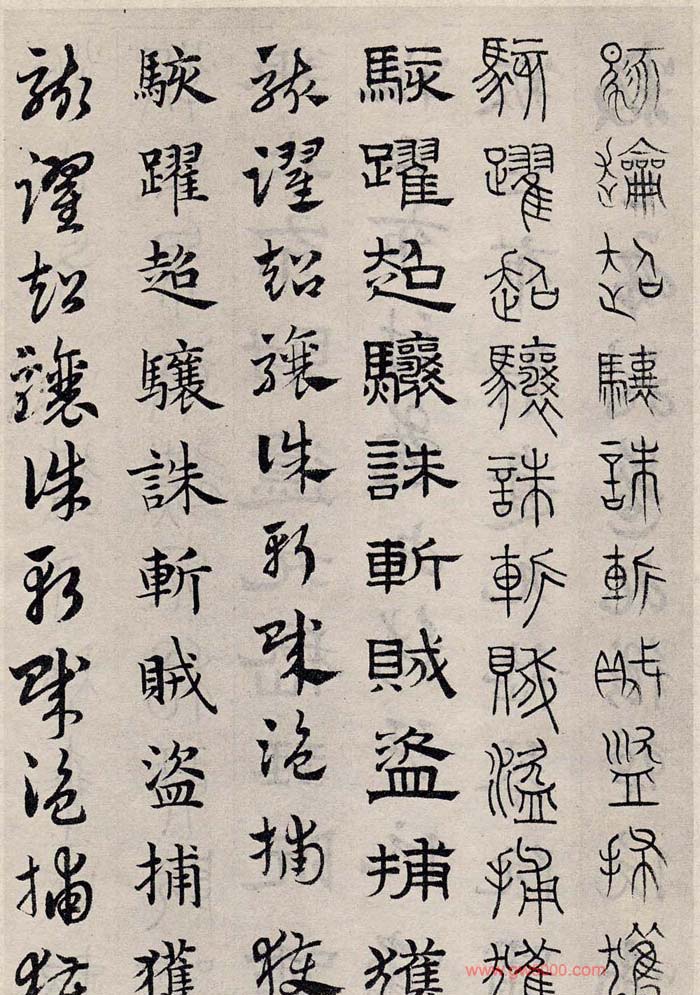 駭躍超驤誅斬賊盜捕獲
駭躍超驤誅斬賊盜捕獲
駭躍超驤誅斬賊盜捕獲
駭躍超驤誅斬賊盜捕獲
駭躍超驤誅斬賊盜捕獲
駭躍超驤誅斬賊盜捕獲